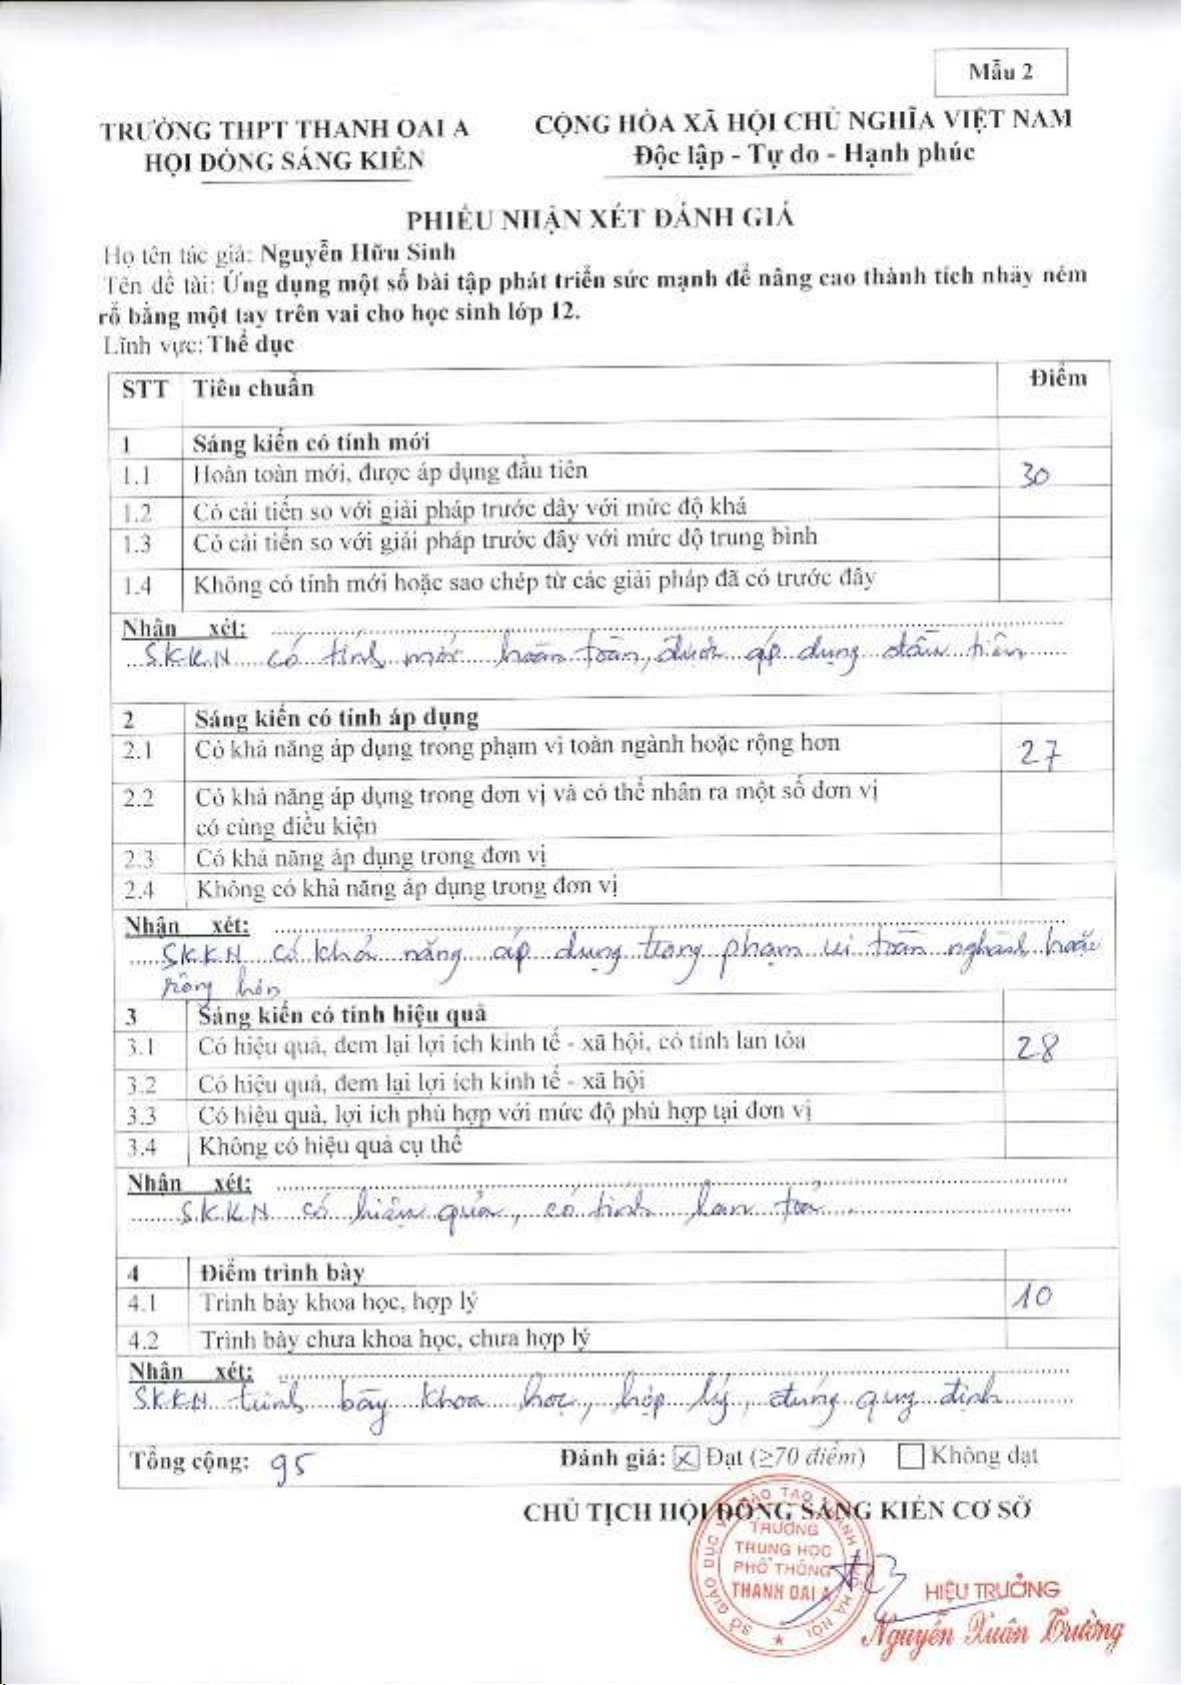 Mẫu 2
TRƯỜNG THPT THANH OAI A
HỘI ĐỒNG SÁNG KIẾN
CỘNG HÒA XÃ HỘI CHỦ NGHĨA VIỆT NAM
Độc lập - Tự do - Hạnh phúc
PHIẾU NHẬN XÉT ĐÁNH GIÁ
Họ tên tác giả: Nguyễn Hữu Sinh
Tên đề tài: Ứng dụng một số bài tập phát triển sức mạnh để nâng cao thành tích nhảy ném
rổ bằng một tay trên vai cho học sinh lớp 12.
Lĩnh vực: Thể dục
STT Tiêu chuẩn Điểm
1 Sáng kiến có tính mới
1.1 Hoàn toàn mới, được áp dụng đầu tiên 30
1.2 Có cải tiến so với giải pháp trước đây với mức độ khá
1.3 Có cải tiến so với giải pháp trước đây với mức độ trung bình
1.4 Không có tính mới hoặc sao chép từ các giải pháp đã có trước đây
Nhận xét:
SKKN có tính mới hoàn toàn, được áp dụng đầu tiên
2 Sáng kiến có tính áp dụng
2.1 Có khả năng áp dụng trong phạm vi toàn ngành hoặc rộng hơn 27
2.2 Có khả năng áp dụng trong đơn vị và có thể nhân ra một số đơn vị
có cùng điều kiện
2.3 Có khả năng áp dụng trong đơn vị
2.4 Không có khả năng áp dụng trong đơn vị
Nhận xét:
SKKN có khả năng áp dụng trong phạm vi toàn nghành hoặc
rộng hơn
3 Sáng kiến có tính hiệu quả
3.1 Có hiệu quả, đem lại lợi ích kinh tế - xã hội, có tính lan tỏa 28
3.2 Có hiệu quả, đem lại lợi ích kinh tế - xã hội
3.3 Có hiệu quả, lợi ích phù hợp với mức độ phù hợp tại đơn vị
3.4 Không có hiệu quả cụ thể
Nhận xét:
SKKN có hiệu quả, có tính lan toả.
4 Điểm trình bày
4.1 Trình bày khoa học, hợp lý 10
4.2 Trình bày chưa khoa học, chưa hợp lý
Nhận xét:
SKKN trình bày khoa học, hợp lý, đúng quy định
Tổng cộng: 95 Đánh giá: Đạt (≥70 điểm) Không đạt
CHỦ TỊCH HỘI ĐỒNG SÁNG KIẾN CƠ SỞ
SỞ GIÁO DỤC VÀ ĐÀO TẠO THÀNH PHỐ HÀ NỘI
TRƯỜNG
TRUNG HỌC
PHỔ THÔNG
THANH OAI A
HIỆU TRƯỞNG
Nguyễn Xuân Trường